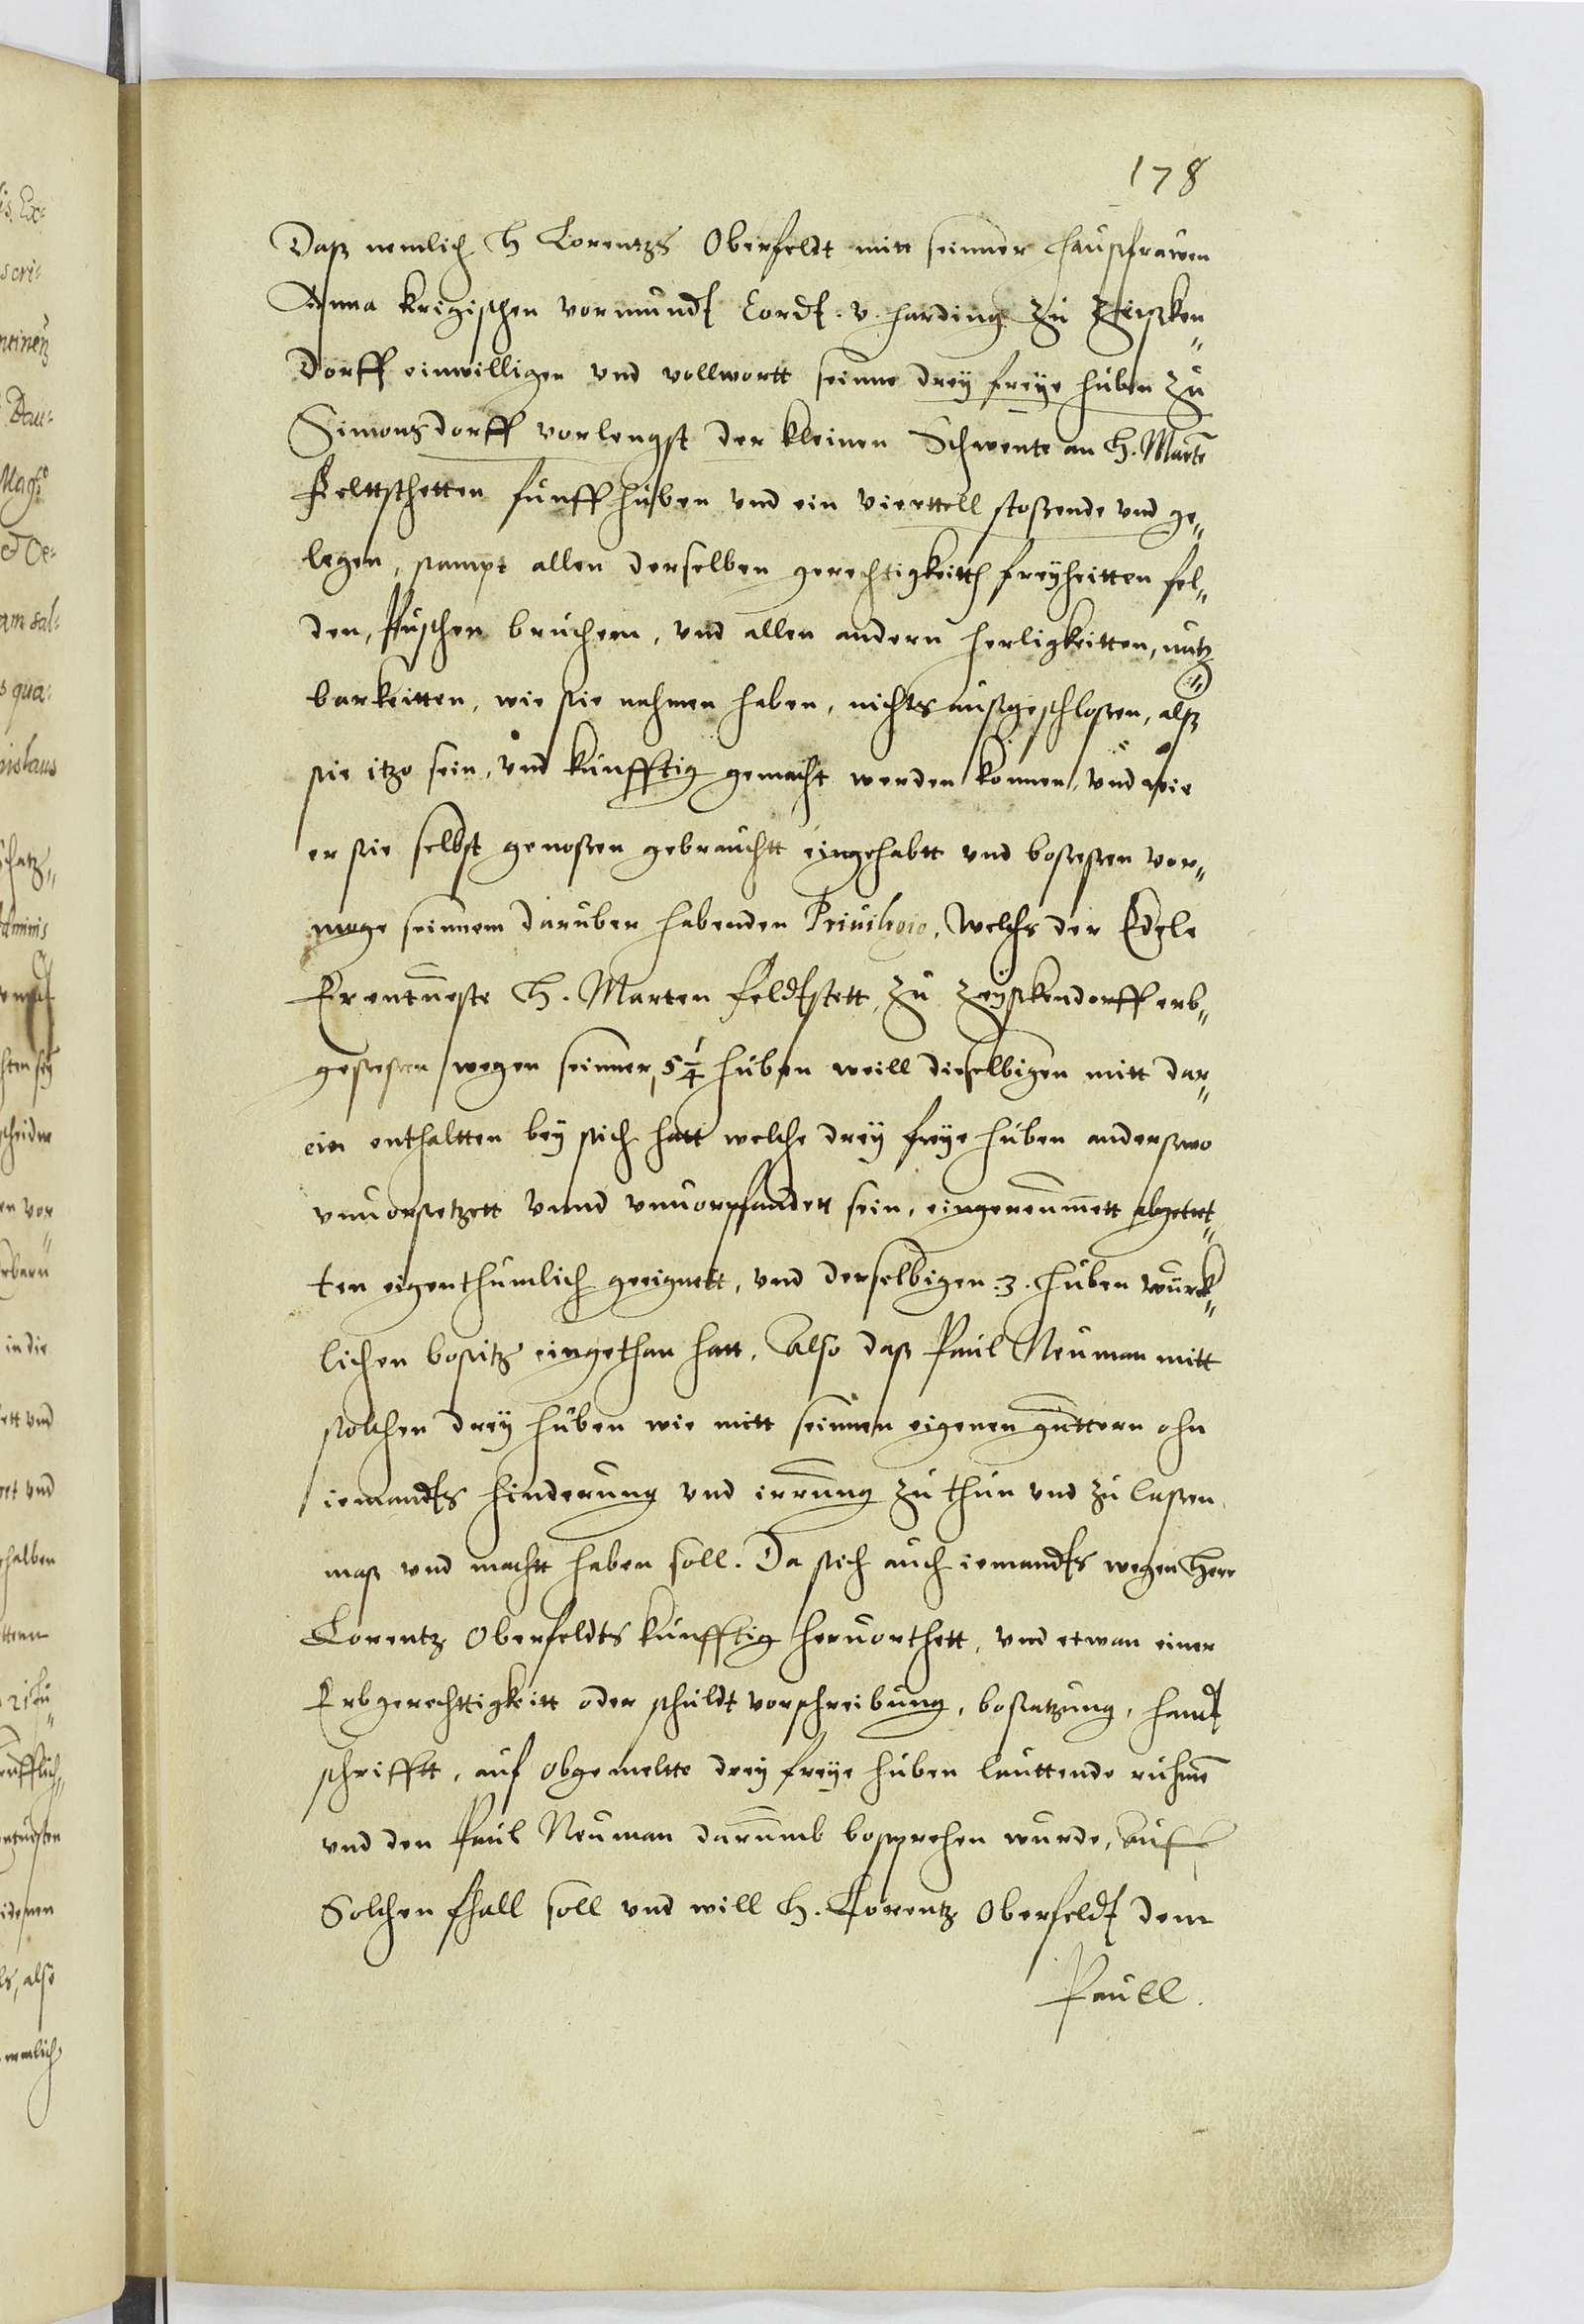 178
Daß nemlich H Lorentzs Oberfeldt mitt seinner haußfrawen
Anna krigischen vormundt Cordt. v. harding zu Zeißken„
dorff einwilligen vnd vollwortt seinne drey freye huben zu
Simonsdorff vorlengst der kleinen Schwente an H. Marte
Feltstetten funff huben vnd ein viertell stoßende vnd ge„
legen, sampt allen derselben gerechtigkeitt freyheitten fel„
den, Puschen bruchern, vnd allen andern herligkeitten, nutz„
barkeitten, wie sie nahmen haben, nichts außgeschloßen, alß
sie itzo sein, vnd kunfftig gemacht werden können, vnd wie
er sie selbst genoßen gebrauchtt eingehabtt vnd beseßen vor„
moge seinnem daruber habenden Priuilegio, Welchs der Edele
Erentueste H. Marten Feldtstett, zu Zeyßkendorff erb„
geseßen wegen seinner, 5 1/4 huben weill dieselbigen mitt dar„
ein enthaltten bey sich hatt welche drey freye huben anderßwo
vnuorsetzett vnnd vnuorpfandett sein, eingereummett abgetret„
ten eigenthumlich geeignett, vnd derselbigen .3. huben wurk„
lichen besitz eingethan hatt, Also daß Paul Neuman mitt
solchen drey huben wie mitt seinnen eigenen guttern ohn
iemandts hinderung vnd irrung zu thun vnd zu laßen
maß vnd machtt haben soll. Da sich auch iemandts wegen Herr
Lorentz Oberfeldts kunfftig heruorthett, vnd etwan einer
Erbgerechttigkeitt oder schuldt vorschreibung, besatzung, handt
schrifftt, auf obgemeltte drey freye huben lauttende ruhme
vnd den Paul Neuman darumb besprechen wurde, Auf
Solchen fhall soll vnd will H. Lorentz Oberfeldt dem
Paull.